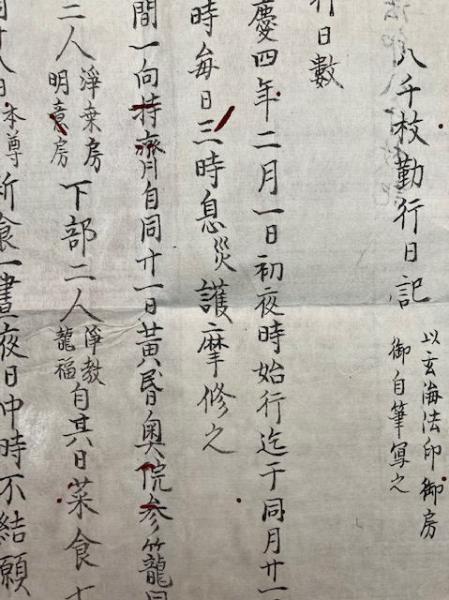 八千枚勤行日記
以玄海法印御房
御自筆寫之
行日數
慶四年二月一日初夜時始行迄于同月廿一
時每日三時息災護摩修之
間一向持齊自同廿一日黃昏奥院参籠
二人
淨房
明意房
下部二人
淨教
龍福
自其日菜食
日本尊
断食一晝夜日中時不結願